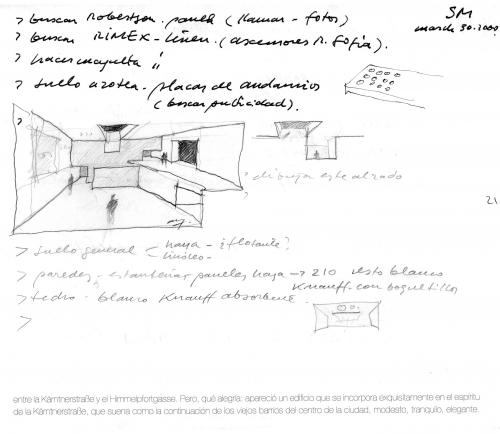 SM
march 30.2009
> buscar Robertson. panels (llamar - fotos)
> buscar RIMEX - Linen. (ascensores R. Sofía).
> hacer maqueta !!
> suelo azotea - placas de andamios
(buscar publicidad).
>
> dibujar este alzado
>
21
> suelo general < haya - ¿flotante?
linóleo -
> paredes - estanterías paneles haya → 210 resto blanco
Knauff. con boquetillos
> techo - blanco Knauff absorbente.
>
entre la Kärntnerstraße y el Himmelpfortgasse. Pero, qué alegría: apareció un edificio que se incorpora exquisitamente en el espíritu
de la Kärntnerstraße, que suena como la continuación de los viejos barrios del centro de la ciudad, modesto, tranquilo, elegante.